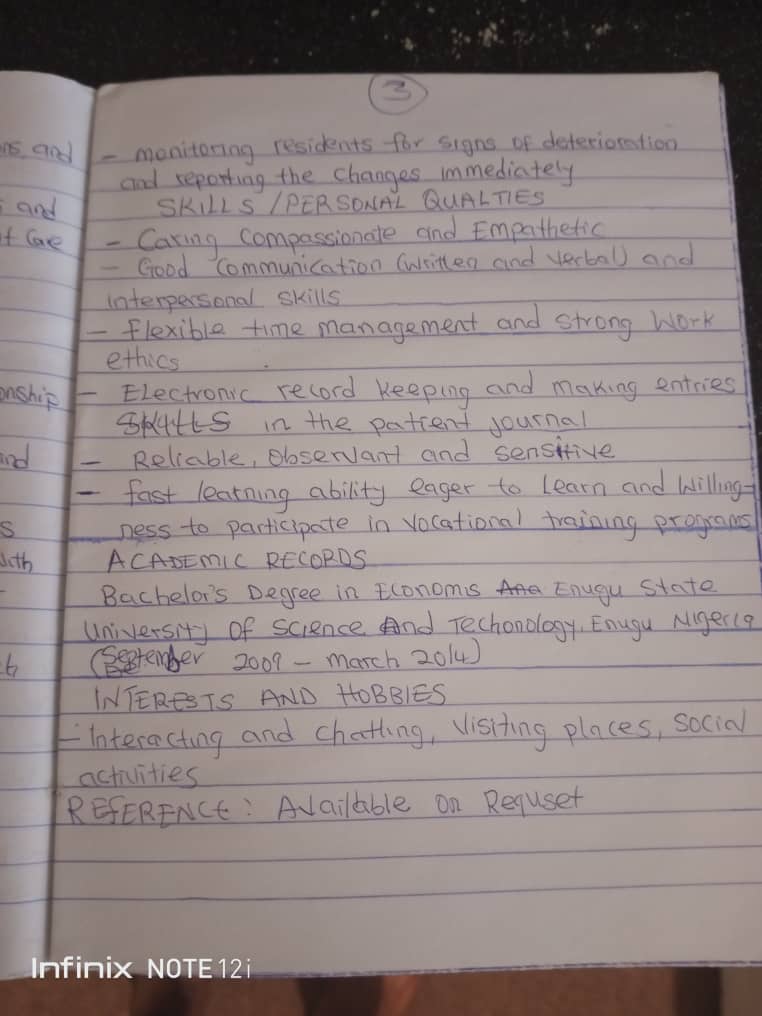 3
ns and
- monitoring residents for signs of deterioration
and reporting the changes immediately
s and
SKILLS / PERSONAL QUALTIES
f Care
- Caring Compassionate and Empathetic
- Good Communication (written and verbal) and
interpersonal skills
- flexible time management and strong work
ethics
onship
- Electronic record keeping and making entries
SKILLS in the patient journal
and
- Reliable, Observant and sensitive
- fast learning ability eager to learn and willing-
s
ness to participate in vocational training programs
with
ACADEMIC RECORDS
Bachelor's Degree in Economis Ana Enugu State
University Of Science And Techonology, Enugu Nigeria
(September 2009 - march 2014)
INTERESTS AND HOBBIES
- Interacting and chatting, visiting places, social
activities
REFERENCE: Available on Requset
Infinix NOTE 12i